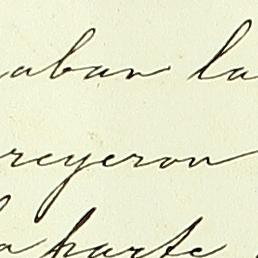 aban la
reyeron
la parte